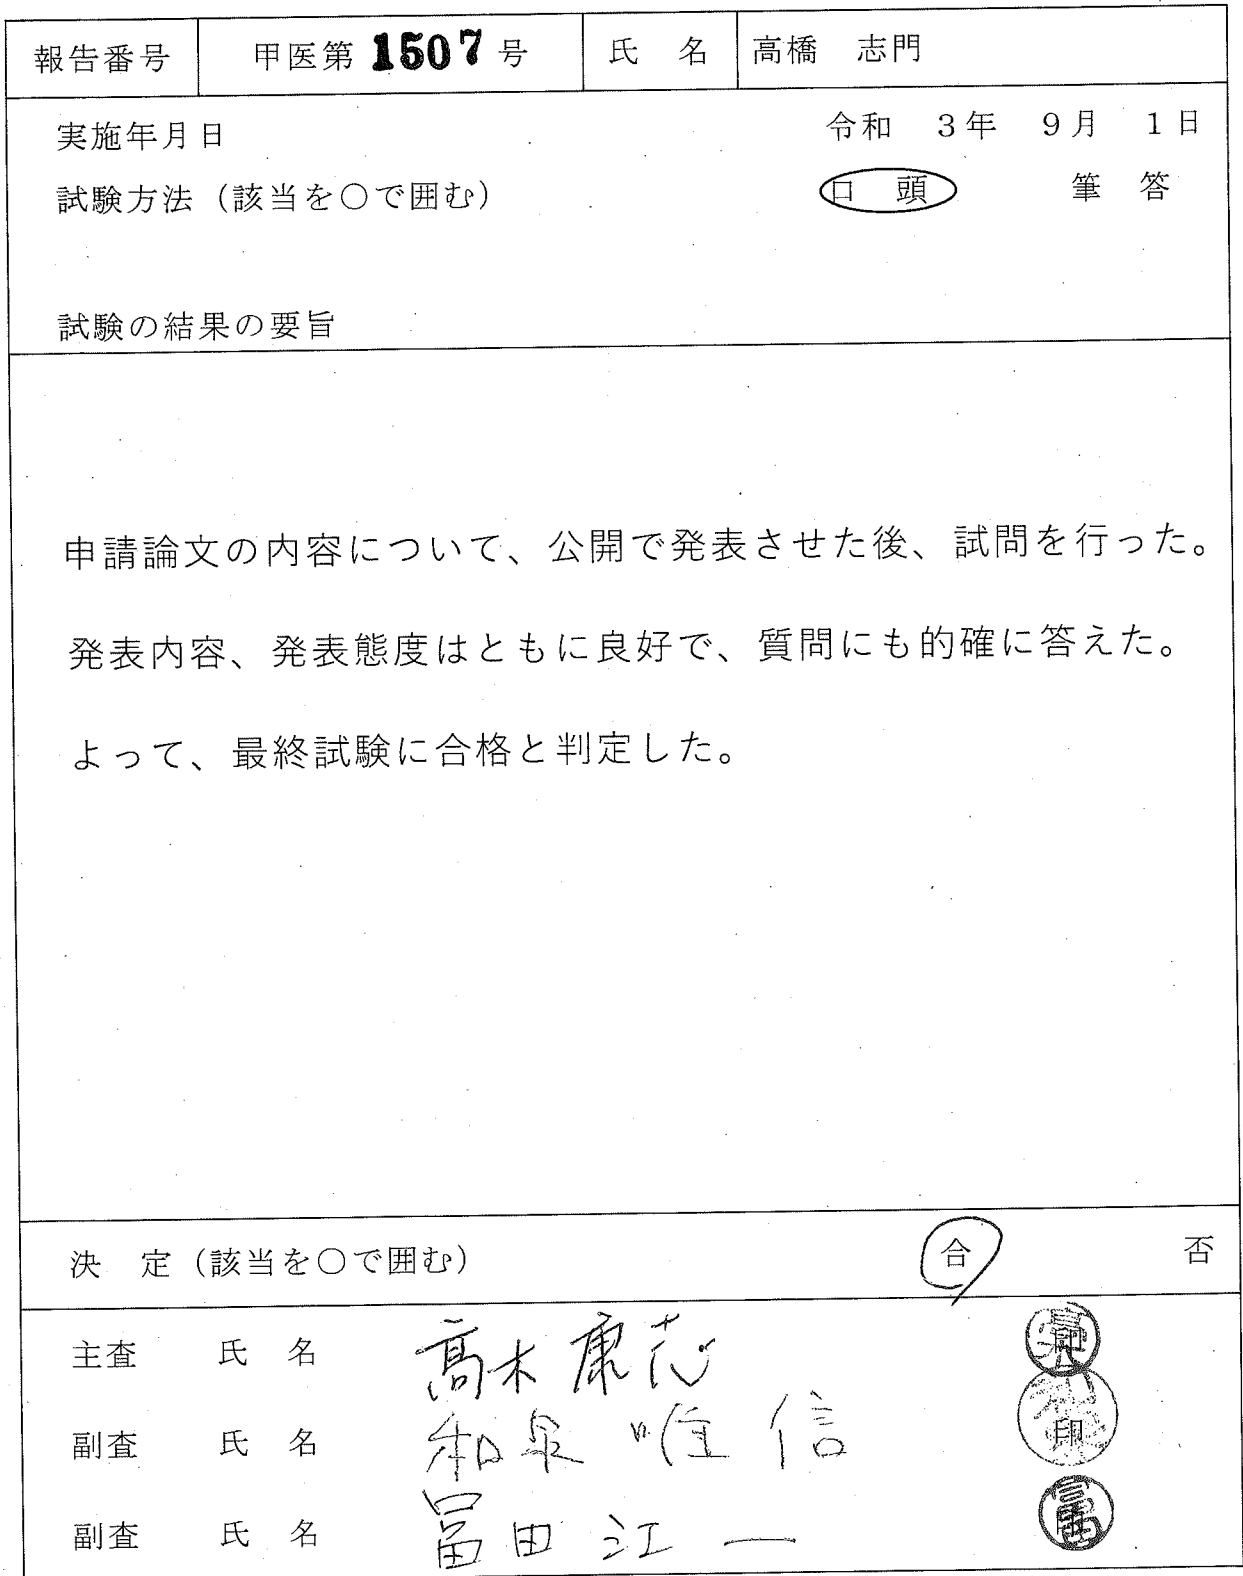 報告番号 甲医第1507号 氏 名 高橋 志門
実施年月日 令和 3年 9月 1日
試験方法（該当を〇で囲む） 口 頭 筆 答
試験の結果の要旨
申請論文の内容について、公開で発表させた後、試問を行った。
発表内容、発表態度はともに良好で、質問にも的確に答えた。
よって、最終試験に合格と判定した。
決 定（該当を〇で囲む） 合 否
主査 氏 名 髙木康志 印
副査 氏 名 和泉唯信 印
副査 氏 名 冨田江一